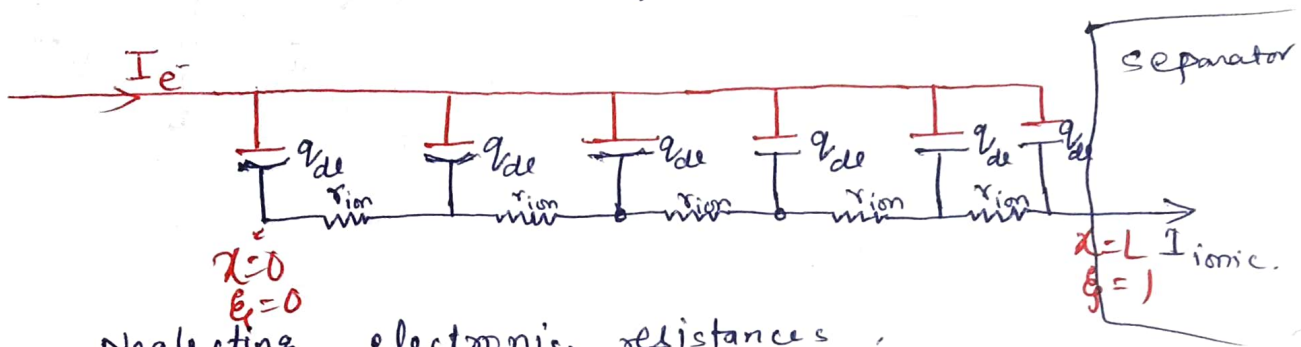 I e⁻
separator
q_dl q_dl q_dl q_dl q_dl q_dl
r_ion r_ion r_ion r_ion r_ion
x=0 x=L I_ionic.
ξ=0 ξ=1
Neglecting electronic resistances.